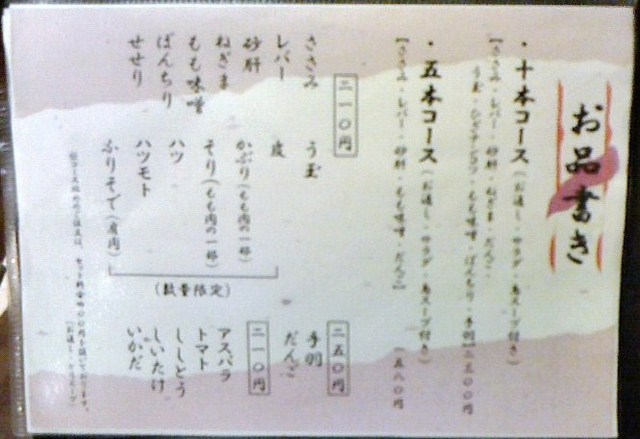 お品書き
・十本コース（お通し・サラダ・鳥スープ付き）
【ささみ・レバー・砂肝・ねぎま・だんご・
うま・シシトウ・もも味噌・ぼんちり・手羽】二五〇〇円
・五本コース（お通し・サラダ・鳥スープ付き）
【ささみ・レバー・砂肝・もも味噌・だんご】一五八〇円
二一〇円
ささみ
レバー
砂肝
ねぎま
もも味噌
ぼんちり
せせり
う玉
皮
かぶり（もも肉の一部）
そり（もも肉の一部）
ハツ
ハツモト
ふりそで（肩肉）
（数量限定）
二五〇円
手羽
だんご
二一〇円
アスパラ
トマト
ししとう
しいたけ
いかだ